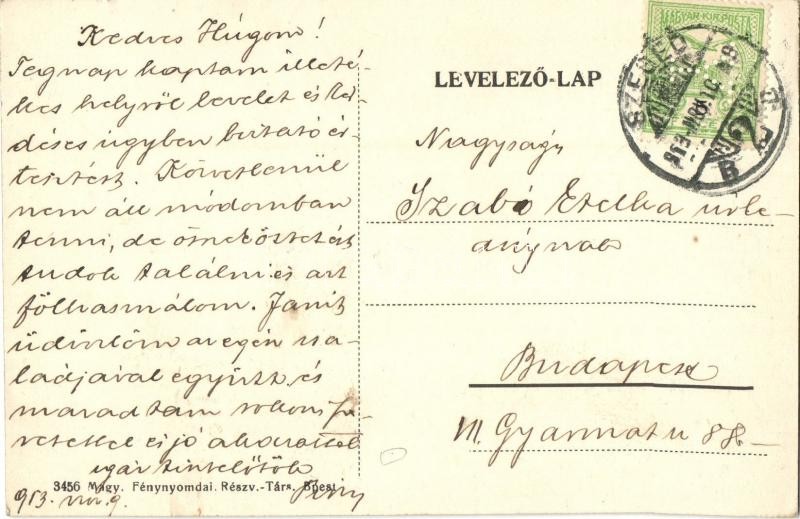 Kedves Húgom!
Tegnap kaptam illeté-
kes helyről levelet és kér-
déses ügyben biztató ér-
tesítést. Közvetlenül
nem áll módomban
tenni, de összeköttetést
tudok találni és azt
fölhasználom. Janit
üdvözlöm az egész csa-
ládjával együtt és
maradtam rokoni sze-
retettel és jó akarattal
igaz tisztelőtök
913. nov. 9.
3456 Magy. Fénynyomdai. Részv.-Társ. Bpest
LEVELEZŐ-LAP
MAGYAR KIR. POSTA
SZEGED 2
Nagyságos
Szabó Etelka urle-
ánynak
Budapest
VII. Gyarmat u 88-